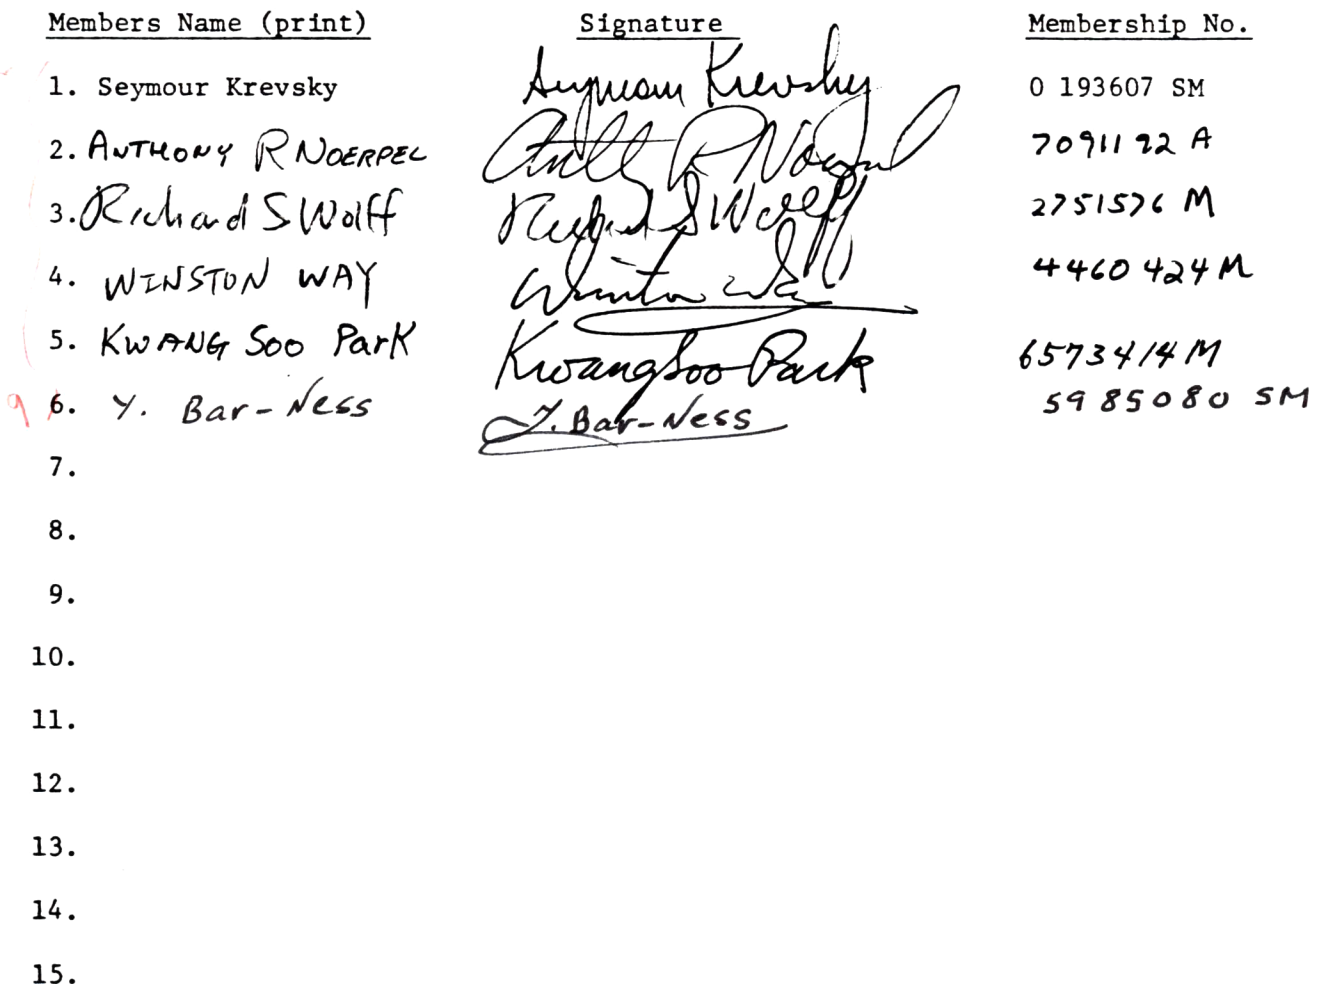 Members Name (print) Signature Membership No.
1. Seymour Krevsky Seymour Krevsky 0 193607 SM
2. ANTHONY R NOERPEL Anthony R Noerpel 7091192 A
3. Richard S Wolff Richard S Wolff 2751576 M
4. WINSTON WAY Winston Way 4460424 M
5. KWANG Soo ParK Kwang Soo Park 6573414 M
9 6. Y. Bar-Ness Y. Bar-Ness 5985080 SM
7.
8.
9.
10.
11.
12.
13.
14.
15.